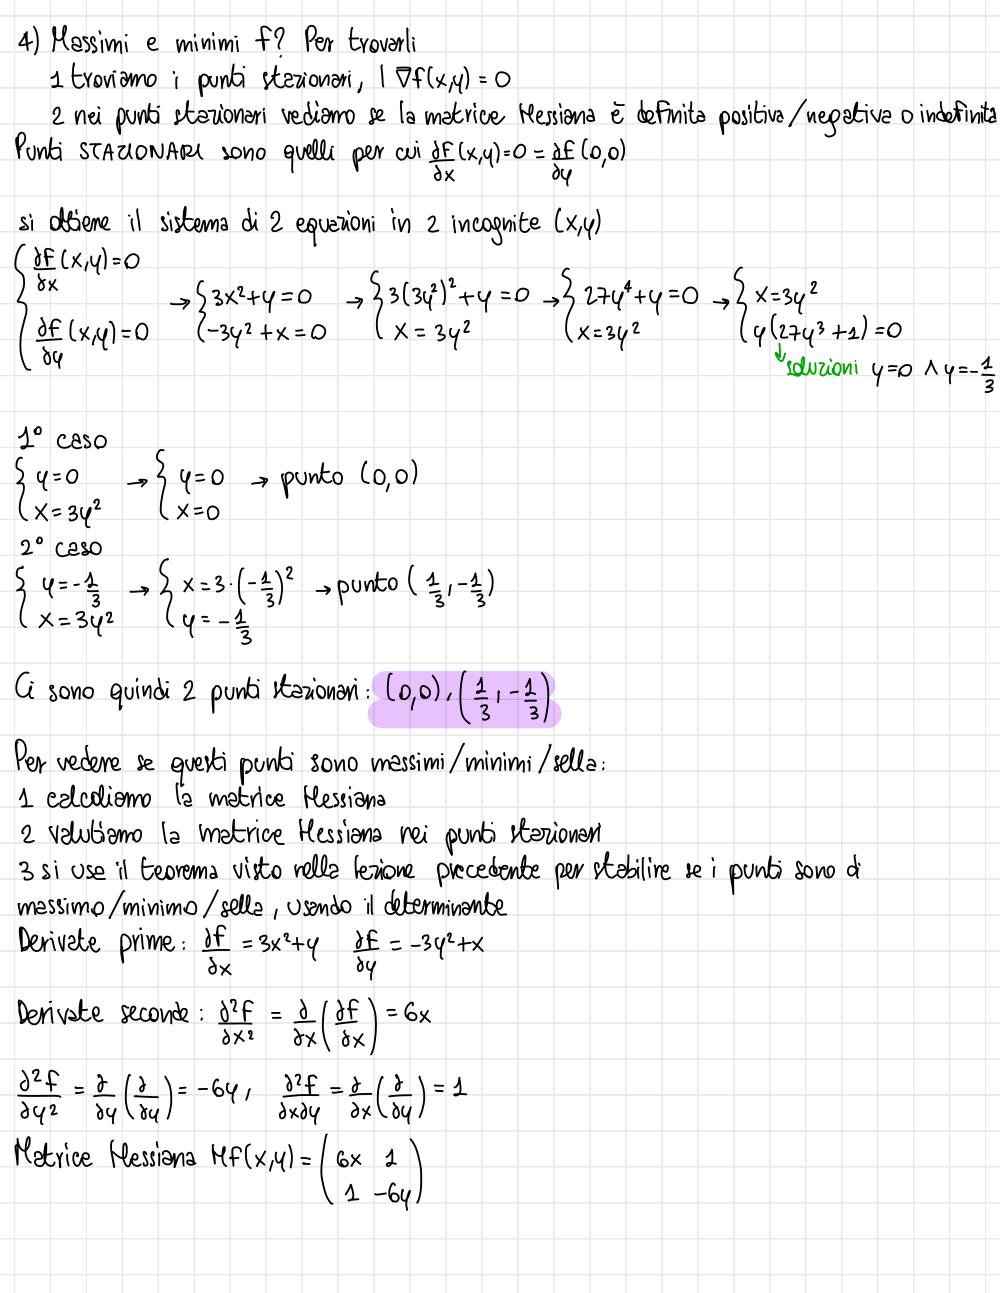 4) Massimi e minimi f? Per trovarli
1 troviamo i punti stazionari, | ∇f(x,y) = 0
2 nei punti stazionari vediamo se la matrice Hessiana è definita positiva/negativa o indefinita
Punti STAZIONARI sono quelli per cui ∂f/∂x (x,y)=0 = ∂f/∂y (0,0)
si ottiene il sistema di 2 equazioni in 2 incognite (x,y)
{ ∂f/∂x (x,y)=0 ; ∂f/∂y (x,y)=0 → { 3x²+y=0 ; -3y²+x=0 → { 3(3y²)²+y=0 ; x=3y² → { 27y⁴+y=0 ; x=3y² → { x=3y² ; y(27y³+1)=0
↓ soluzioni y=0 ∧ y=-1/3
1° caso
{ y=0 ; x=3y² → { y=0 ; x=0 → punto (0,0)
2° caso
{ y=-1/3 ; x=3y² → { x=3·(-1/3)² ; y=-1/3 → punto (1/3,-1/3)
Ci sono quindi 2 punti stazionari: (0,0), (1/3,-1/3)
Per vedere se questi punti sono massimi/minimi/sella:
1 calcoliamo la matrice Hessiana
2 valutiamo la matrice Hessiana nei punti stazionari
3 si usa il teorema visto nella lezione precedente per stabilire se i punti sono di
massimo/minimo/sella, usando il determinante
Derivate prime: ∂f/∂x = 3x²+y ∂f/∂y = -3y²+x
Derivate seconde: ∂²f/∂x² = ∂/∂x (∂f/∂x) = 6x
∂²f/∂y² = ∂/∂y (∂/∂y) = -6y, ∂²f/∂x∂y = ∂/∂x (∂/∂y) = 1
Matrice Hessiana Hf(x,y) = (6x 1
1 -6y)